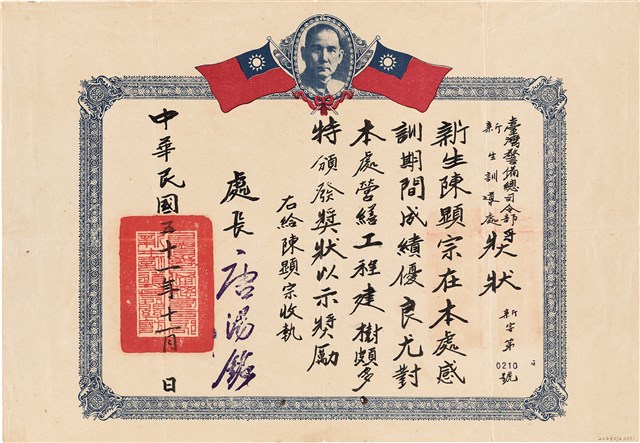 臺灣警備總司令部
新生訓導處
獎狀
新字第
0210
號
新生陳顯宗在本處感
訓期間成績優良尤對
本處營繕工程建樹頗多
特頒發獎狀以示獎勵
右給陳顯宗收執
處長
唐湯銘
中華民國五十一年十一月 日